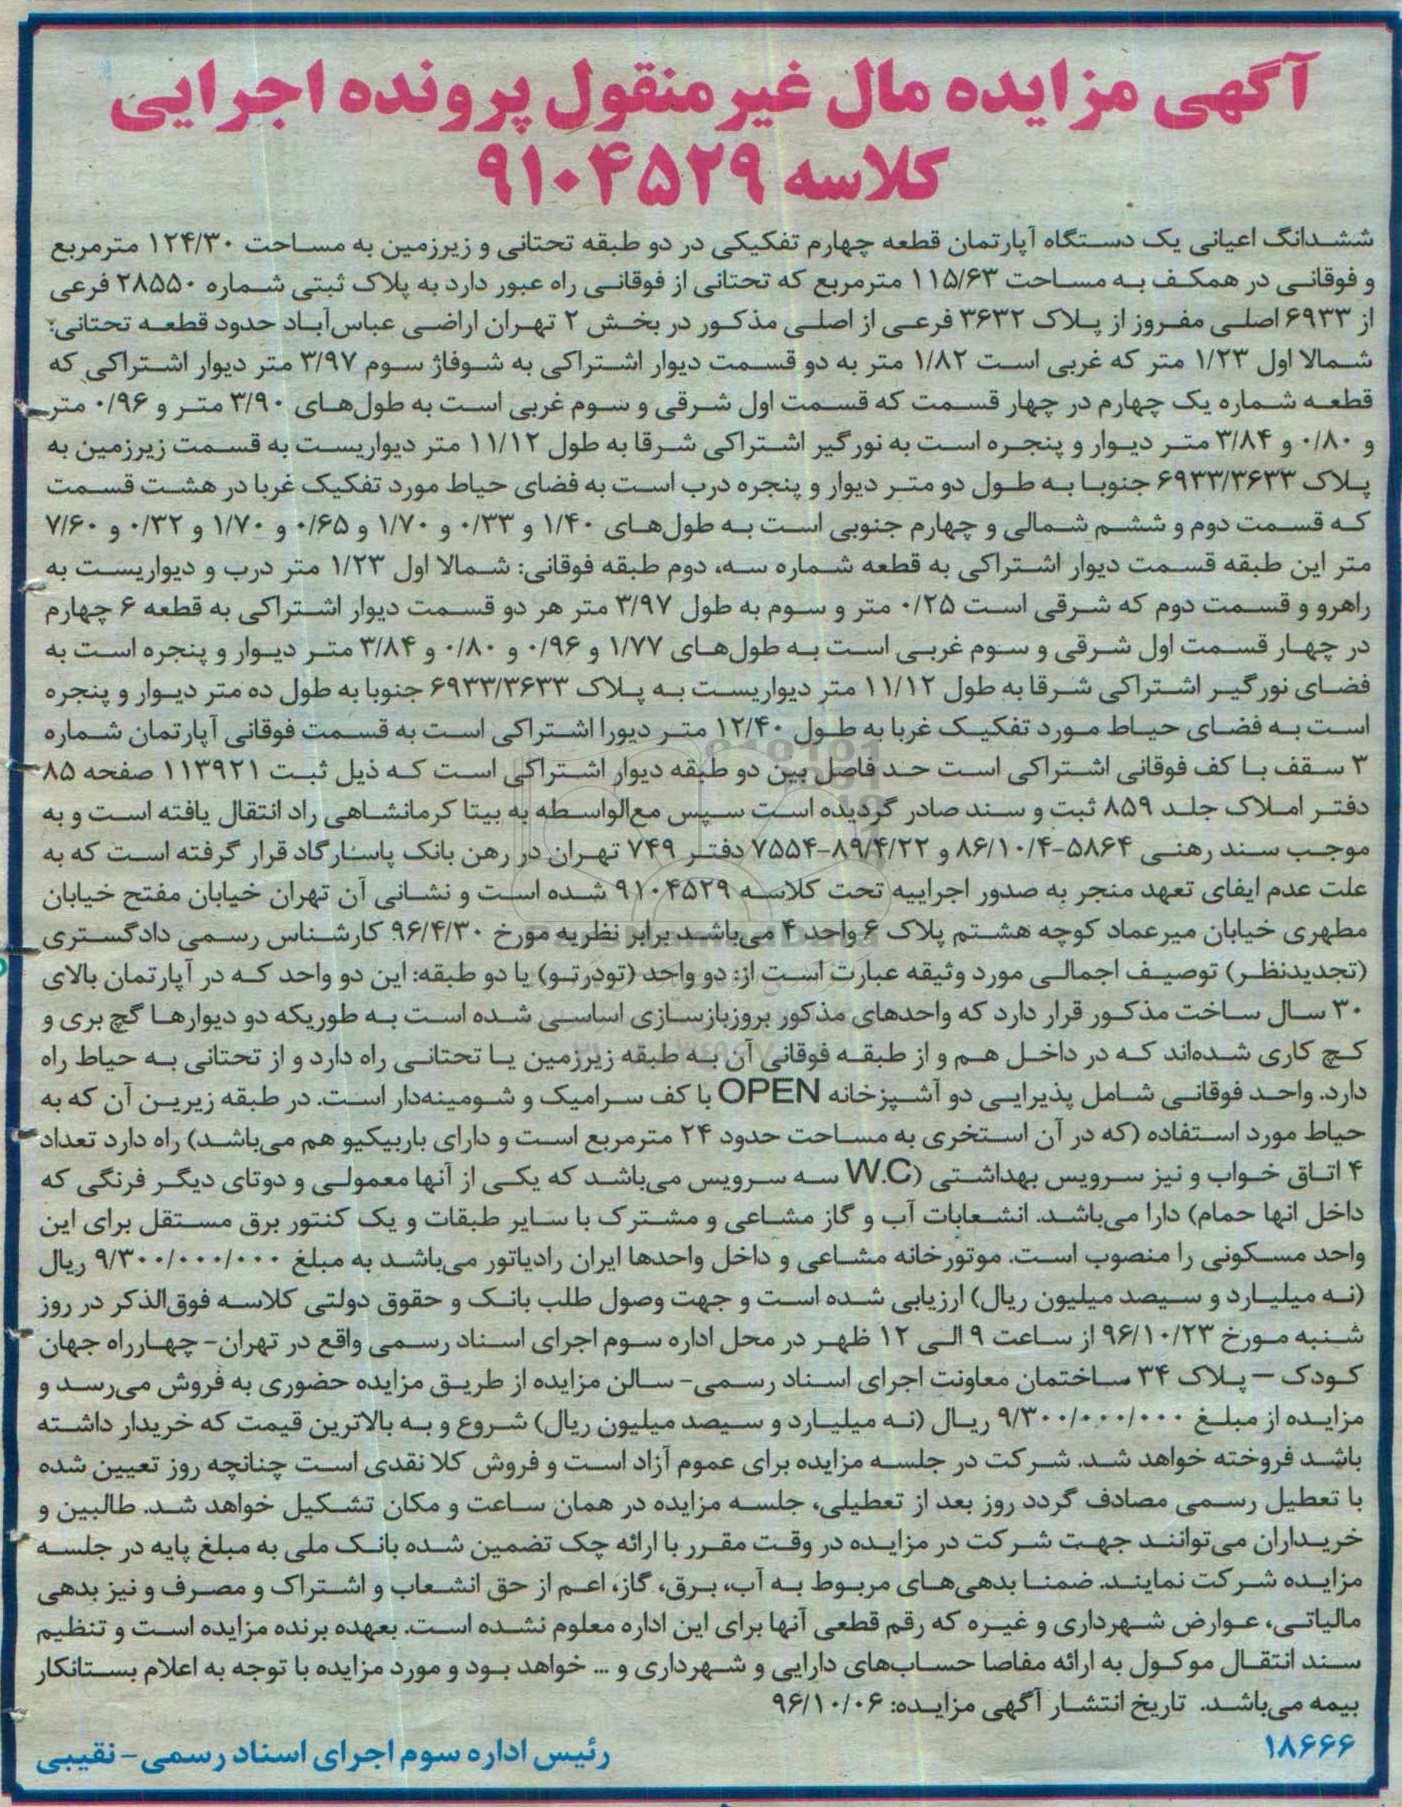 آگهی مزایده مال غیرمنقول پرونده اجرایی
کلاسه ۹۱۰۴۵۲۹
ششدانگ اعیانی یک دستگاه آپارتمان قطعه چهارم تفکیکی در دو طبقه تحتانی و زیرزمین به مساحت ۱۲۴/۳۰ مترمربع
و فوقانی در همکف به مساحت ۱۱۵/۶۳ مترمربع که تحتانی از فوقانی راه عبور دارد به پلاک ثبتی شماره ۲۸۵۵۰ فرعی
از ۶۹۳۳ اصلی مفروز از پلاک ۳۶۳۲ فرعی از اصلی مذکور در بخش ۲ تهران اراضی عباس‌آباد حدود قطعه تحتانی:
شمالا اول ۱/۲۳ متر که غربی است ۱/۸۲ متر به دو قسمت دیوار اشتراکی به شوفاژ سوم ۳/۹۷ متر دیوار اشتراکی که
قطعه شماره یک چهارم در چهار قسمت که قسمت اول شرقی و سوم غربی است به طول‌های ۳/۹۰ متر و ۰/۹۶ متر
و ۰/۸۰ و ۳/۸۴ متر دیوار و پنجره است به نورگیر اشتراکی شرقا به طول ۱۱/۱۲ متر دیواریست به قسمت زیرزمین به
پلاک ۶۹۳۳/۳۶۳۳ جنوبا به طول دو متر دیوار و پنجره درب است به فضای حیاط مورد تفکیک غربا در هشت قسمت
که قسمت دوم و ششم شمالی و چهارم جنوبی است به طول‌های ۱/۴۰ و ۰/۳۳ و ۱/۷۰ و ۰/۶۵ و ۱/۷۰ و ۰/۳۲ و ۷/۶۰
متر این طبقه قسمت دیوار اشتراکی به قطعه شماره سه، دوم طبقه فوقانی: شمالا اول ۱/۲۳ متر درب و دیواریست به
راهرو و قسمت دوم که شرقی است ۰/۲۵ متر و سوم به طول ۳/۹۷ متر هر دو قسمت دیوار اشتراکی به قطعه ۶ چهارم
در چهار قسمت اول شرقی و سوم غربی است به طول‌های ۱/۷۷ و ۰/۹۶ و ۰/۸۰ و ۳/۸۴ متر دیوار و پنجره است به
فضای نورگیر اشتراکی شرقا به طول ۱۱/۱۲ متر دیواریست به پلاک ۶۹۳۳/۳۶۳۳ جنوبا به طول ده متر دیوار و پنجره
است به فضای حیاط مورد تفکیک غربا به طول ۱۲/۴۰ متر دیورا اشتراکی است به قسمت فوقانی آپارتمان شماره
۳ سقف با کف فوقانی اشتراکی است حد فاصل بین دو طبقه دیوار اشتراکی است که ذیل ثبت ۱۱۳۹۲۱ صفحه ۸۵
دفتر املاک جلد ۸۵۹ ثبت و سند صادر گردیده است سپس مع‌الواسطه به بیتا کرمانشاهی راد انتقال یافته است و به
موجب سند رهنی ۵۸۶۴-۸۶/۱۰/۴ و ۸۹/۴/۲۲-۷۵۵۴ دفتر ۷۴۹ تهران در رهن بانک پاسارگاد قرار گرفته است که به
علت عدم ایفای تعهد منجر به صدور اجراییه تحت کلاسه ۹۱۰۴۵۲۹ شده است و نشانی آن تهران خیابان مفتح خیابان
مطهری خیابان میرعماد کوچه هشتم پلاک ۶ واحد ۴ می‌باشد برابر نظریه مورخ ۹۶/۴/۳۰ کارشناس رسمی دادگستری
(تجدیدنظر) توصیف اجمالی مورد وثیقه عبارت است از: دو واحد (تودرتو) یا دو طبقه: این دو واحد که در آپارتمان بالای
۳۰ سال ساخت مذکور قرار دارد که واحدهای مذکور بروزبازسازی اساسی شده است به طوریکه دو دیوارها گچ بری و
کچ کاری شده‌اند که در داخل هم و از طبقه فوقانی آن به طبقه زیرزمین یا تحتانی راه دارد و از تحتانی به حیاط راه
دارد. واحد فوقانی شامل پذیرایی دو آشپزخانه OPEN با کف سرامیک و شومینه‌دار است. در طبقه زیرین آن که به
حیاط مورد استفاده (که در آن استخری به مساحت حدود ۲۴ مترمربع است و دارای باربیکیو هم می‌باشد) راه دارد تعداد
۴ اتاق خواب و نیز سرویس بهداشتی (W.C سه سرویس می‌باشد که یکی از آنها معمولی و دوتای دیگر فرنگی که
داخل انها حمام) دارا می‌باشد. انشعابات آب و گاز مشاعی و مشترک با سایر طبقات و یک کنتور برق مستقل برای این
واحد مسکونی را منصوب است. موتورخانه مشاعی و داخل واحدها ایران رادیاتور می‌باشد به مبلغ ۹/۳۰۰/۰۰۰/۰۰۰ ریال
(نه میلیارد و سیصد میلیون ریال) ارزیابی شده است و جهت وصول طلب بانک و حقوق دولتی کلاسه فوق‌الذکر در روز
شنبه مورخ ۹۶/۱۰/۲۳ از ساعت ۹ الی ۱۲ ظهر در محل اداره سوم اجرای اسناد رسمی واقع در تهران- چهارراه جهان
کودک – پلاک ۳۴ ساختمان معاونت اجرای اسناد رسمی- سالن مزایده از طریق مزایده حضوری به فروش می‌رسد و
مزایده از مبلغ ۹/۳۰۰/۰۰۰/۰۰۰ ریال (نه میلیارد و سیصد میلیون ریال) شروع و به بالاترین قیمت که خریدار داشته
باشد فروخته خواهد شد. شرکت در جلسه مزایده برای عموم آزاد است و فروش کلا نقدی است چنانچه روز تعیین شده
با تعطیل رسمی مصادف گردد روز بعد از تعطیلی، جلسه مزایده در همان ساعت و مکان تشکیل خواهد شد. طالبین و
خریداران می‌توانند جهت شرکت در مزایده در وقت مقرر با ارائه چک تضمین شده بانک ملی به مبلغ پایه در جلسه
مزایده شرکت نمایند. ضمنا بدهی‌های مربوط به آب، برق، گاز، اعم از حق انشعاب و اشتراک و مصرف و نیز بدهی
مالیاتی، عوارض شهرداری و غیره که رقم قطعی آنها برای این اداره معلوم نشده است. بعهده برنده مزایده است و تنظیم
سند انتقال موکول به ارائه مفاصا حساب‌های دارایی و شهرداری و ... خواهد بود و مورد مزایده با توجه به اعلام بستانکار
بیمه می‌باشد. تاریخ انتشار آگهی مزایده: ۹۶/۱۰/۰۶
۱۸۶۶۶
رئیس اداره سوم اجرای اسناد رسمی- نقیبی